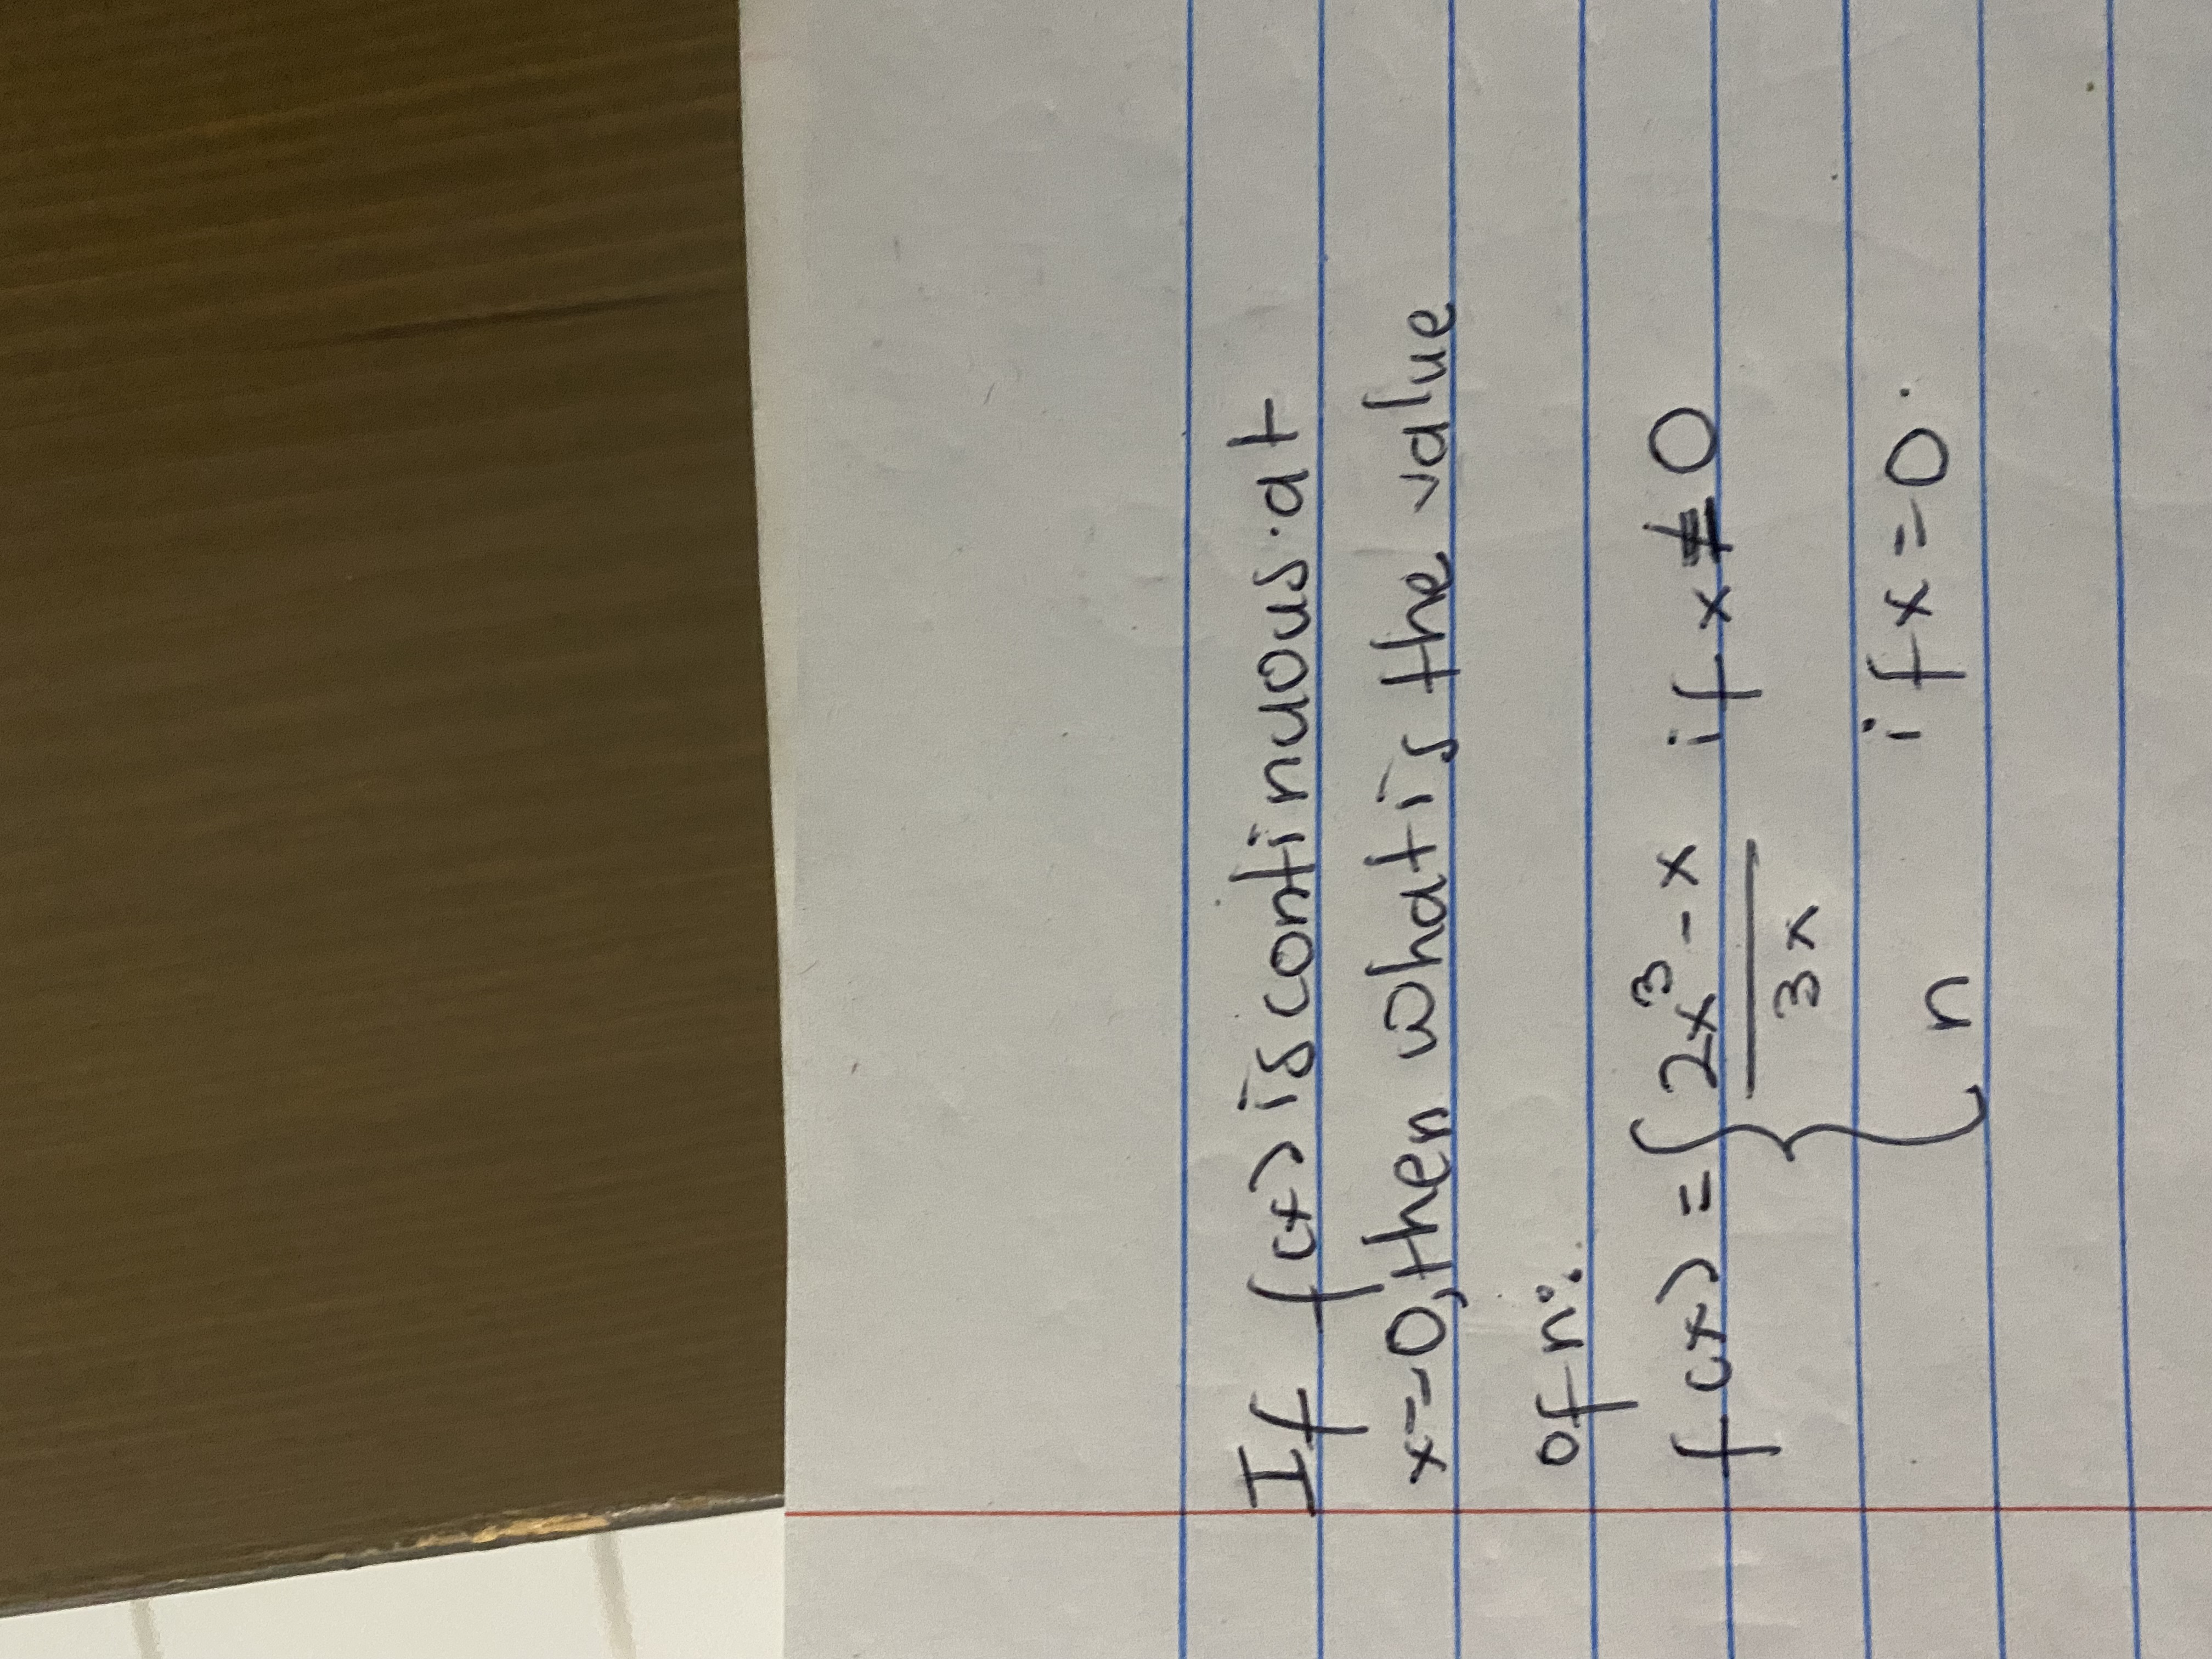 If f(x) is continuous at
x=0, then what is the value
of n:
f(x) = { 2x³ - x if x ≠ 0
3x
n if x = 0.